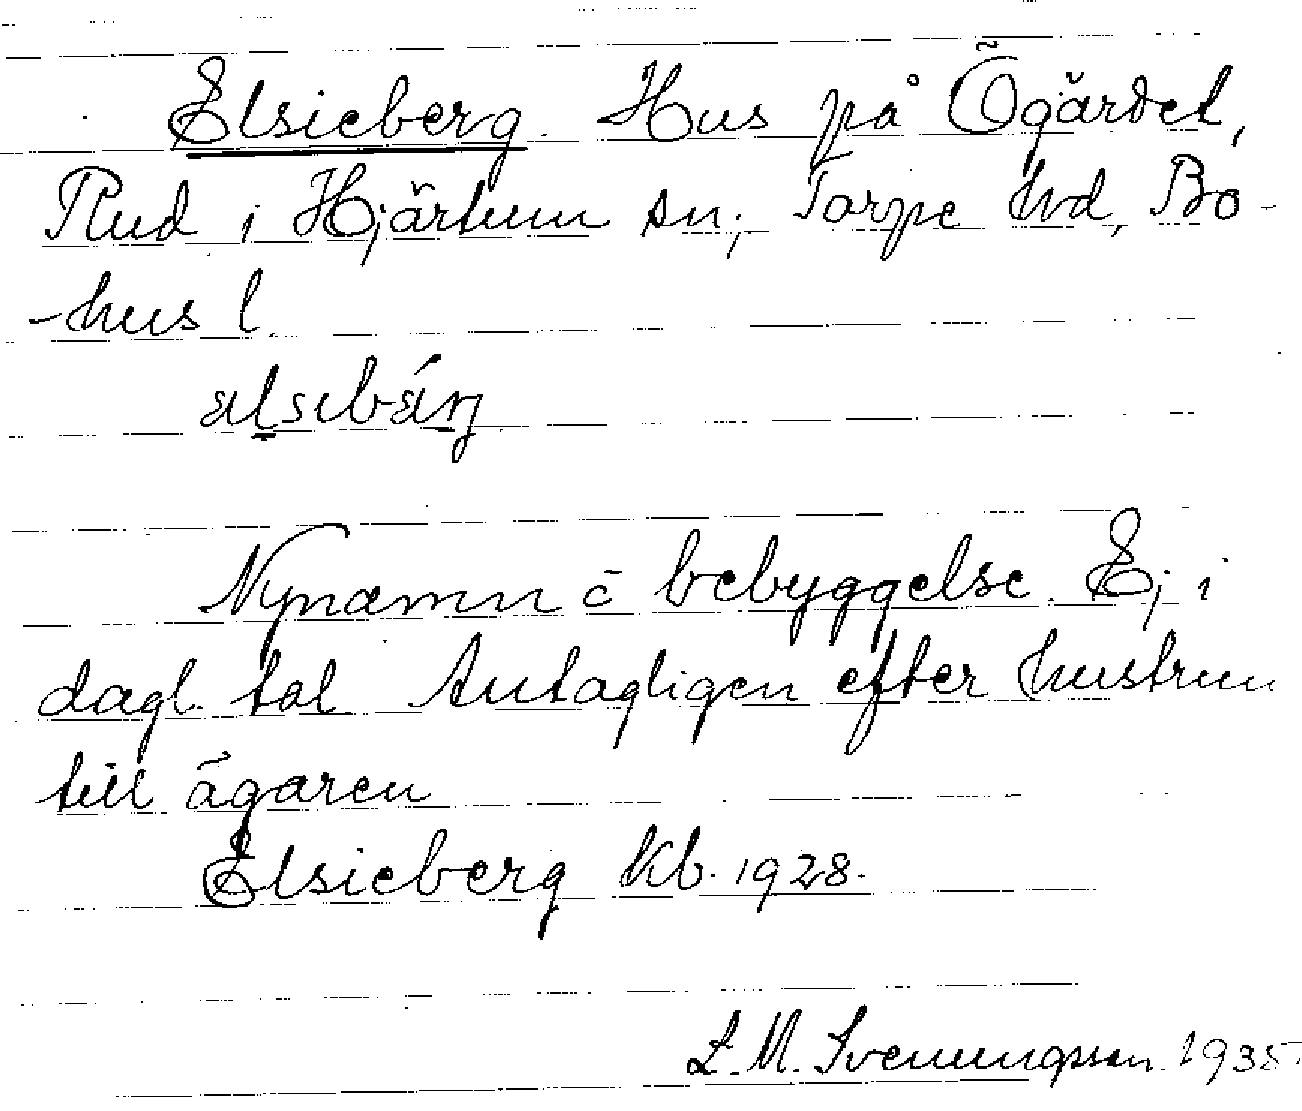 Elsieberg. Hus på Ögärdet,
Rud i Hjärtum sn, Torpe hd, Bo-
-hus l.
ælsibǽrj
Nynamn å bebyggelse. Ej i
dagl. tal Antagligen efter hustrun
till ägaren
Elsieberg kb. 1928.
L. M. Svenungsson 1935.